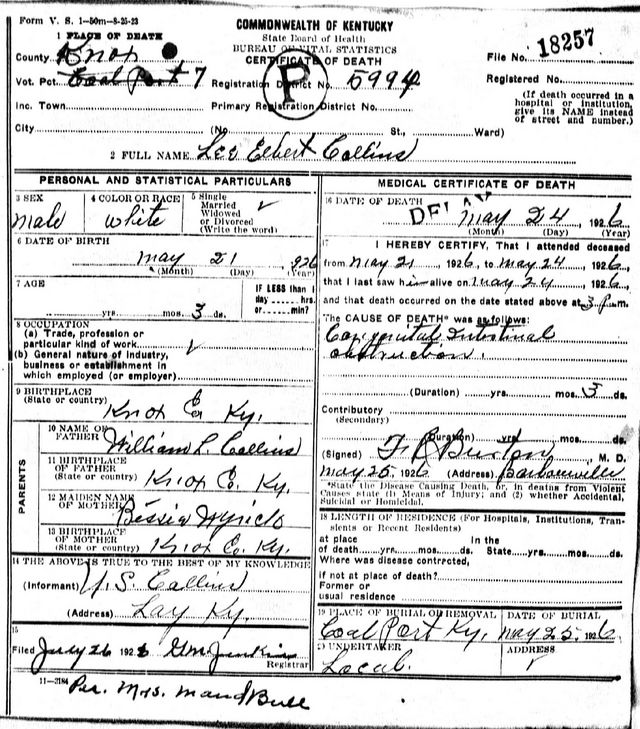 Form V. S. 1—50m—8-25-23
COMMONWEALTH OF KENTUCKY
State Board of Health
BUREAU OF VITAL STATISTICS
CERTIFICATE OF DEATH
File No. 18257
1 PLACE OF DEATH
County Knox
Vot. Pct. Coal Port 7
Registration District No. 5994
P
Registered No.
Inc. Town
Primary Registration District No.
(If death occurred in a hospital or institution, give its NAME instead of street and number.)
City (No. St., Ward)
2 FULL NAME Les Elbert Collins
PERSONAL AND STATISTICAL PARTICULARS
3 SEX
male
4 COLOR OR RACE
White
5 Single
Married
Widowed
or Divorced
(Write the word)
6 DATE OF BIRTH
May 21 926
(Month) (Day) (Year)
7 AGE
yrs. mos. 3 ds.
IF LESS than 1
day hrs.
or min?
8 OCCUPATION
(a) Trade, profession or
particular kind of work
(b) General nature of industry,
business or establishment in
which employed (or employer)
9 BIRTHPLACE
(State or country)
Knox Co Ky.
PARENTS
10 NAME OF
FATHER William L. Collins
11 BIRTHPLACE
OF FATHER
(State or country) Knox Co. Ky.
12 MAIDEN NAME
OF MOTHER Bessie
13 BIRTHPLACE
OF MOTHER
(State or country) Knox Co. Ky.
14 THE ABOVE IS TRUE TO THE BEST OF MY KNOWLEDGE
(Informant) S. Collins
(Address) Lay Ky.
15
Filed July 26 1926 Gm. Jenkins
Registrar
11—3184
Per. Mrs. Maud Bull
MEDICAL CERTIFICATE OF DEATH
16 DATE OF DEATH
May 24, 1926
(Month) (Day) (Year)
17
I HEREBY CERTIFY, That I attended deceased
from May 21 1926, to May 24, 1926,
that I last saw him alive on May 24, 1926,
and that death occurred on the date stated above at 3 P.m.
The CAUSE OF DEATH* was as follows:
Congenital Intestinal
obstruction.
(Duration) yrs. mos. 3 ds.
Contributory
(Secondary)
(Duration) yrs. mos. ds.
(Signed) Burton, M. D.
May 25, 1926 (Address) Barbourville
*State the Disease Causing Death, or, in deaths from Violent
Causes state (1) Means of Injury; and (2) whether Accidental,
Suicidal or Homicidal.
18 LENGTH OF RESIDENCE (For Hospitals, Institutions, Transients or Recent Residents)
at place In the
of death yrs. mos. ds. State yrs. mos. ds.
Where was disease contracted,
if not at place of death?
Former or
usual residence
19 PLACE OF BURIAL OR REMOVAL
Coal Port Ky.
DATE OF BURIAL
May 25, 1926
20 UNDERTAKER
Local.
ADDRESS